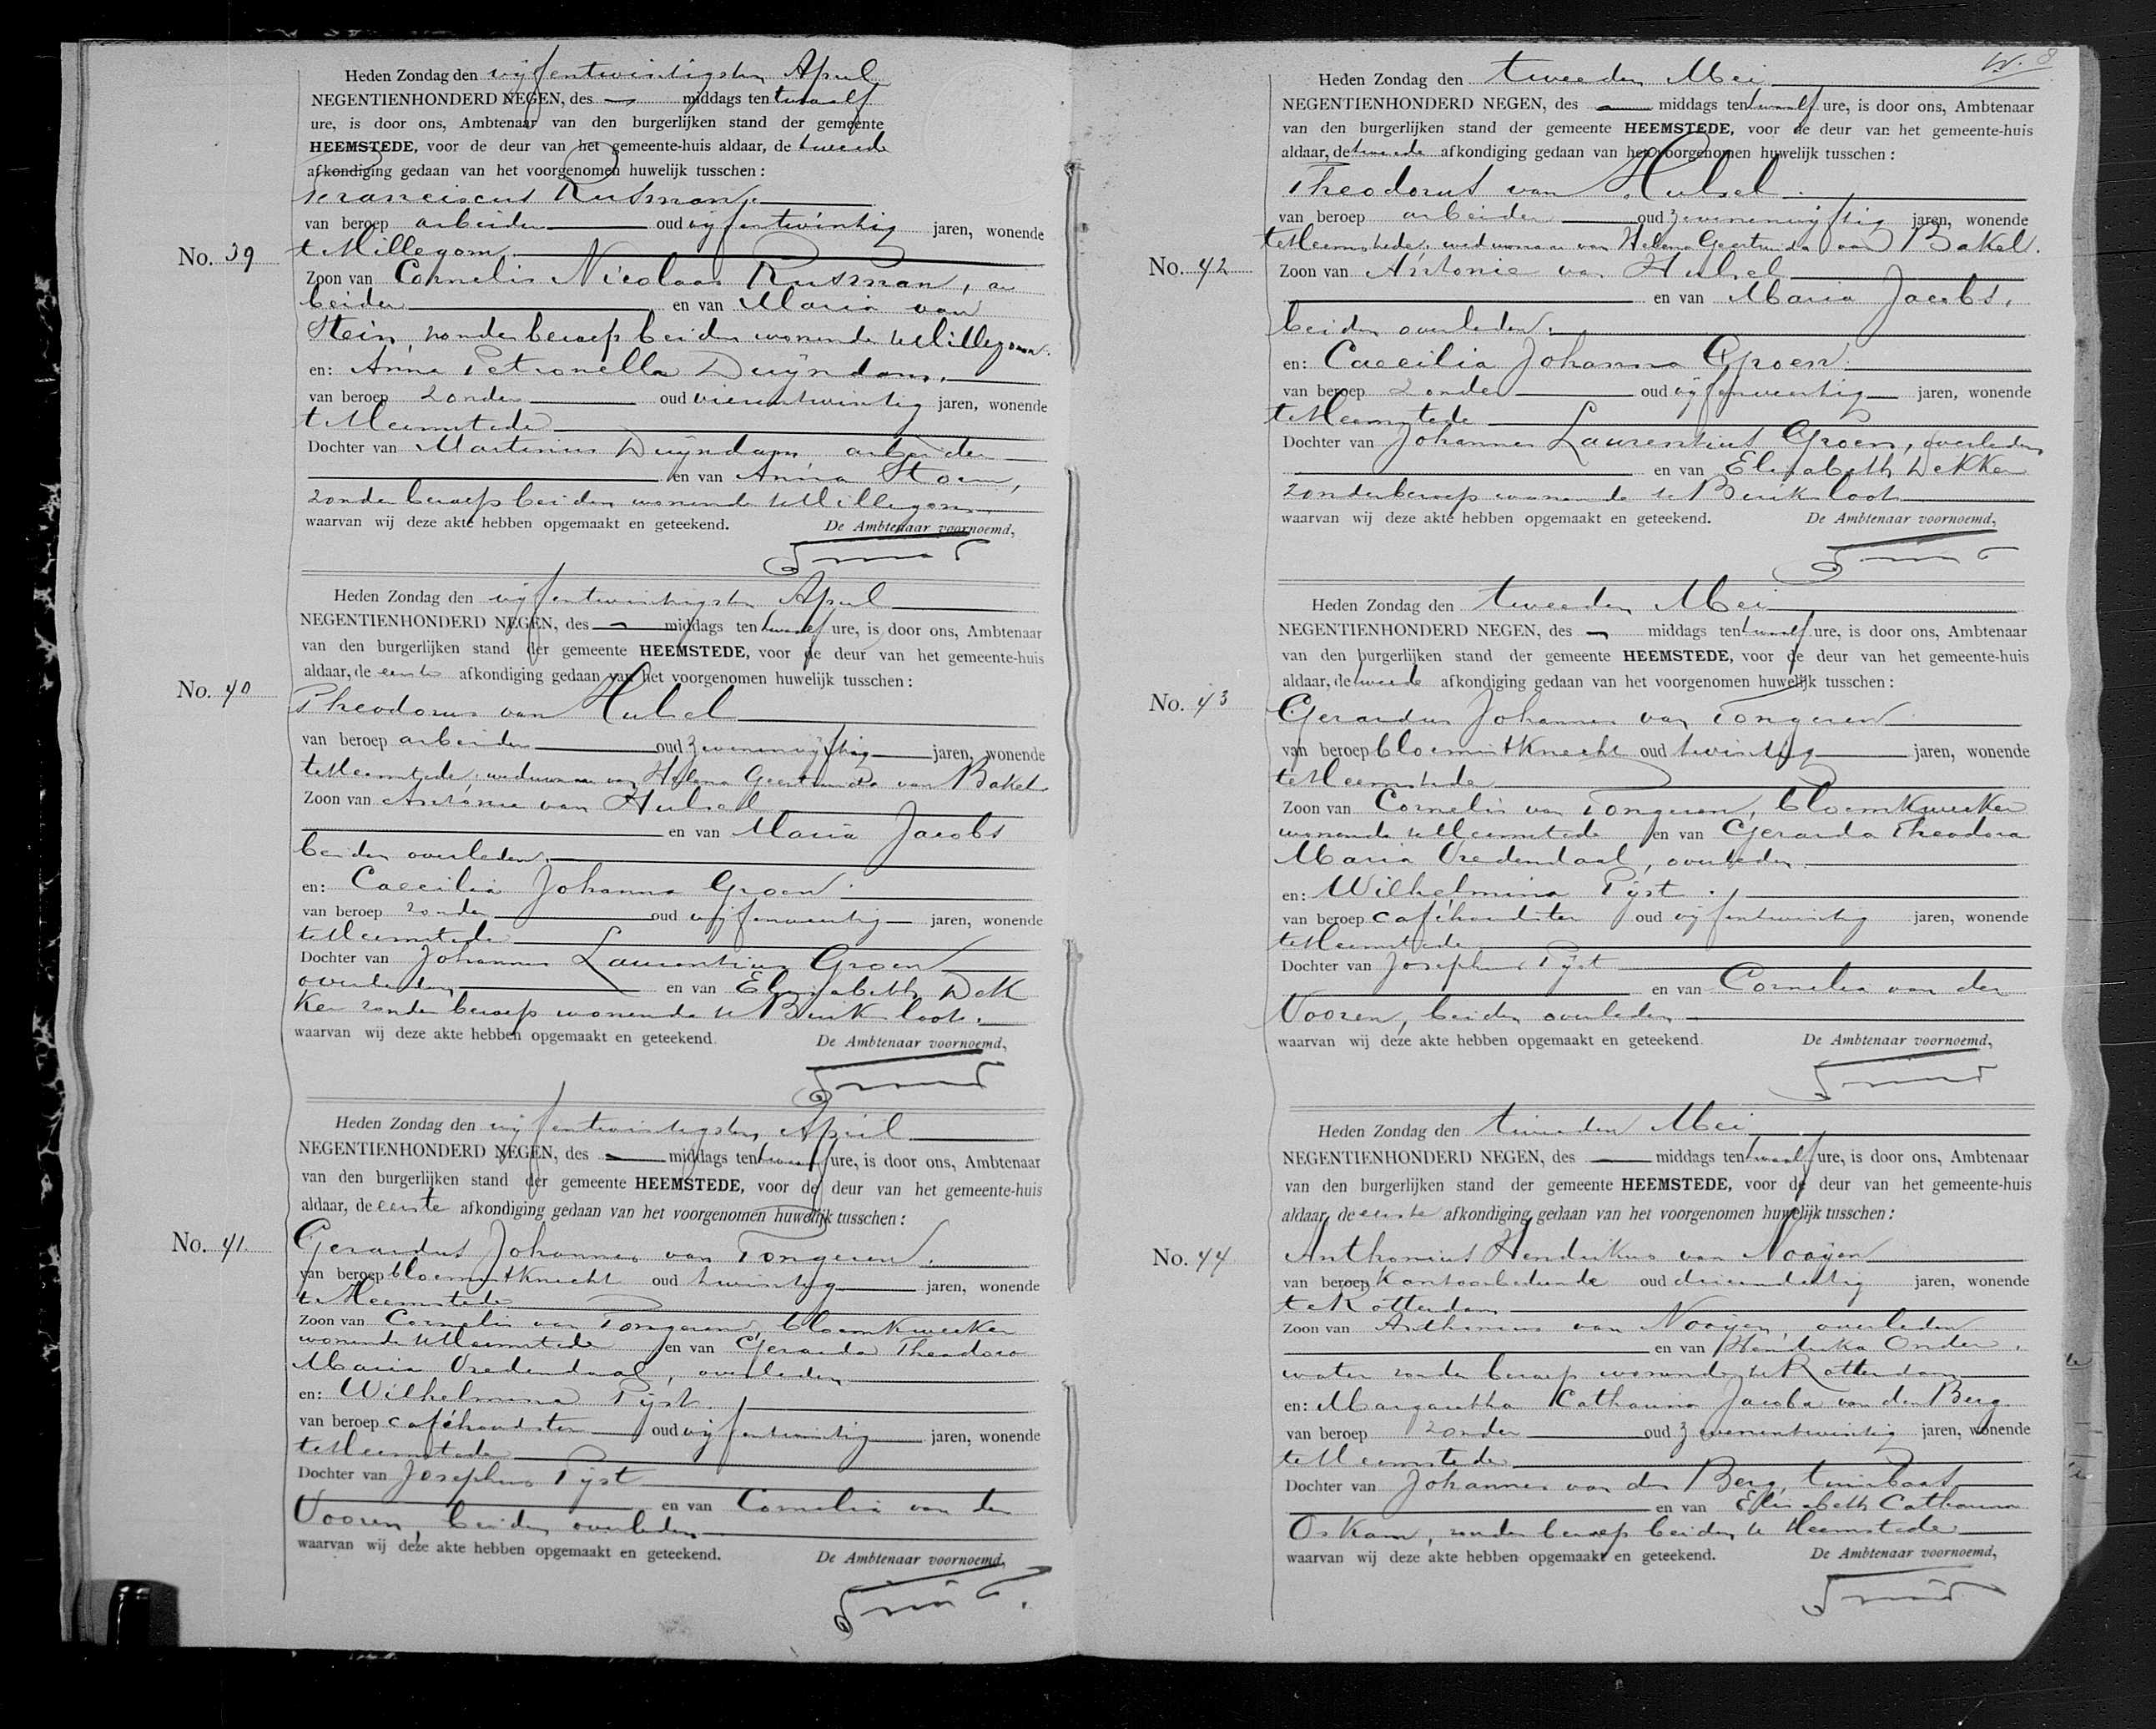 Heden Zondag den vijfentwintigsten April
NEGENTIENHONDERD NEGEN, des — middags ten twaalf
ure, is door ons, Ambtenaar van den burgerlijken stand der gemeente
HEEMSTEDE, voor de deur van het gemeente-huis aldaar, de tweede
afkondiging gedaan van het voorgenomen huwelijk tusschen:
Franciscus Rusman.
van beroep arbeider oud vijfentwintig jaren, wonende
No. 39
te Hillegom,
Zoon van Cornelis Nicolaas Rusman, ar
beider en van Maria van
Stein, zonder beroep beiden wonende te Hillegom.
en: Anna Petronella Duÿndam.
van beroep zonder oud vierentwintig jaren, wonende
te Heemstede
Dochter van Martinus Duÿndam arbeider
en van Anna
zonder beroep beiden wonende te Hillegom
waarvan wij deze akte hebben opgemaakt en geteekend.
De Ambtenaar voornoemd,
Heden Zondag den vijfentwintigsten April
NEGENTIENHONDERD NEGEN, des — middags ten twaalf ure, is door ons, Ambtenaar
van den burgerlijken stand der gemeente HEEMSTEDE, voor de deur van het gemeente-huis
aldaar, de eerste afkondiging gedaan van het voorgenomen huwelijk tusschen:
No. 40
Theodorus van Hulsel
van beroep arbeider oud zevenenvijftig jaren, wonende
te Heemstede, weduwnaar van Helena Geertruida van Bakel
Zoon van Antonie van Hulsel
en van Maria Jacobs
beiden overleden.
en: Caecilia Johanna Groen.
van beroep zonder oud vijfenveertig jaren, wonende
te Heemstede
Dochter van Johannes Laurentius Groen
overleden en van Elisabeth Dek
ker zonder beroep wonende te Buiksloot.
waarvan wij deze akte hebben opgemaakt en geteekend.
De Ambtenaar voornoemd,
Heden Zondag den vijfentwintigsten April
NEGENTIENHONDERD NEGEN, des — middags ten twaalf ure, is door ons, Ambtenaar
van den burgerlijken stand der gemeente HEEMSTEDE, voor de deur van het gemeente-huis
aldaar, de eerste afkondiging gedaan van het voorgenomen huwelijk tusschen:
No. 41.
Gerardus Johannes van Tongeren.
van beroep bloemistknecht oud twintig jaren, wonende
te Heemstede
Zoon van Cornelis van Tongeren, bloemkweeker
wonende te Heemstede en van Gerarda Theodora
Maria Vredendaal, overleden
en: Wilhelmina Pÿst.
van beroep caféhoudster oud vijfentwintig jaren, wonende
te Heemstede
Dochter van Josephus Pÿst
en van Cornelia van der
Vooren, beiden overleden
waarvan wij deze akte hebben opgemaakt en geteekend.
De Ambtenaar voornoemd,
8
Heden Zondag den tweeden Mei
NEGENTIENHONDERD NEGEN, des — middags ten twaalf ure, is door ons, Ambtenaar
van den burgerlijken stand der gemeente HEEMSTEDE, voor de deur van het gemeente-huis
aldaar, de tweede afkondiging gedaan van het voorgenomen huwelijk tusschen:
Theodorus van Hulsel.
van beroep arbeider oud zevenenvijftig jaren, wonende
te Heemstede, weduwnaar van Helena Geertruida van Bakel.
No. 42
Zoon van Antonie van Hulsel
en van Maria Jacobs,
beiden overleden.
en: Caecilia Johanna Groen.
van beroep zonder oud vijfenveertig jaren, wonende
te Heemstede
Dochter van Johannes Laurentius Groen, overleden
en van Elisabeth Dekker
zonder beroep wonende te Buiksloot
waarvan wij deze akte hebben opgemaakt en geteekend.
De Ambtenaar voornoemd,
Heden Zondag den tweeden Mei
NEGENTIENHONDERD NEGEN, des — middags ten twaalf ure, is door ons, Ambtenaar
van den burgerlijken stand der gemeente HEEMSTEDE, voor de deur van het gemeente-huis
aldaar, de tweede afkondiging gedaan van het voorgenomen huwelijk tusschen:
No. 43
Gerardus Johannes van Tongeren
van beroep bloemistknecht oud twintig jaren, wonende
te Heemstede
Zoon van Cornelis van Tongeren, bloemkweeker
wonende te Heemstede en van Gerarda Theodora
Maria Vredendaal, overleden
en: Wilhelmina Pÿst.
van beroep caféhoudster oud vijfentwintig jaren, wonende
te Heemstede
Dochter van Josephus Pÿst
en van Cornelia van der
Vooren, beiden overleden
waarvan wij deze akte hebben opgemaakt en geteekend.
De Ambtenaar voornoemd,
Heden Zondag den tweeden Mei
NEGENTIENHONDERD NEGEN, des — middags ten twaalf ure, is door ons, Ambtenaar
van den burgerlijken stand der gemeente HEEMSTEDE, voor de deur van het gemeente-huis
aldaar, de eerste afkondiging gedaan van het voorgenomen huwelijk tusschen:
No. 44
Anthonius Hendrikus van Nooÿen
van beroep kantoorbediende oud drieendertig jaren, wonende
te Rotterdam
Zoon van Anthonius van Nooÿen, overleden
en van Hendrika Onder
water zonder beroep wonende te Rotterdam
en: Margaretha Catharina Jacoba van den Berg.
van beroep zonder oud zevenentwintig jaren, wonende
te Heemstede
Dochter van Johannes van den Berg, tuinbaas
en van Elisabeth Catharina
Oskam, zonder beroep beiden te Heemstede
waarvan wij deze akte hebben opgemaakt en geteekend.
De Ambtenaar voornoemd,